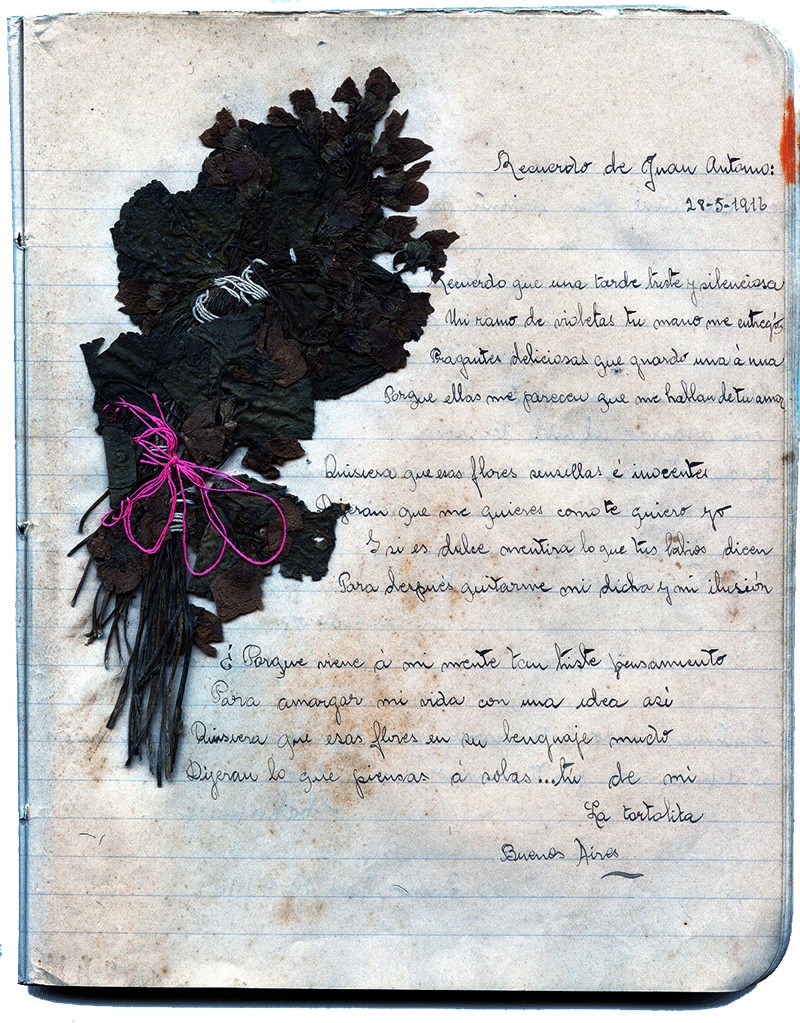 Recuerdo de Juan Antonio:
28-5-1916
Recuerdo que una tarde triste y silenciosa
Un ramo de violetas tu mano me entregó
Fragantes deliciosas que guardo una á una
Porque ellas me parecen que me hablan de tu amor
Quisiera que esas flores sensillas é inocentes
Dijeran que me quieres como te quiero yo
Y si es dulce mentira lo que tus labios dicen
Para después quitarme mi dicha y mi ilusión
É Porque viene á mi mente tan triste pensamiento
Para amargar mi vida con una idea así
Quisiera que esas flores en su lenguaje mudo
Dijeran lo que piensas á solas...tú de mi
La tortolita
Buenos Aires